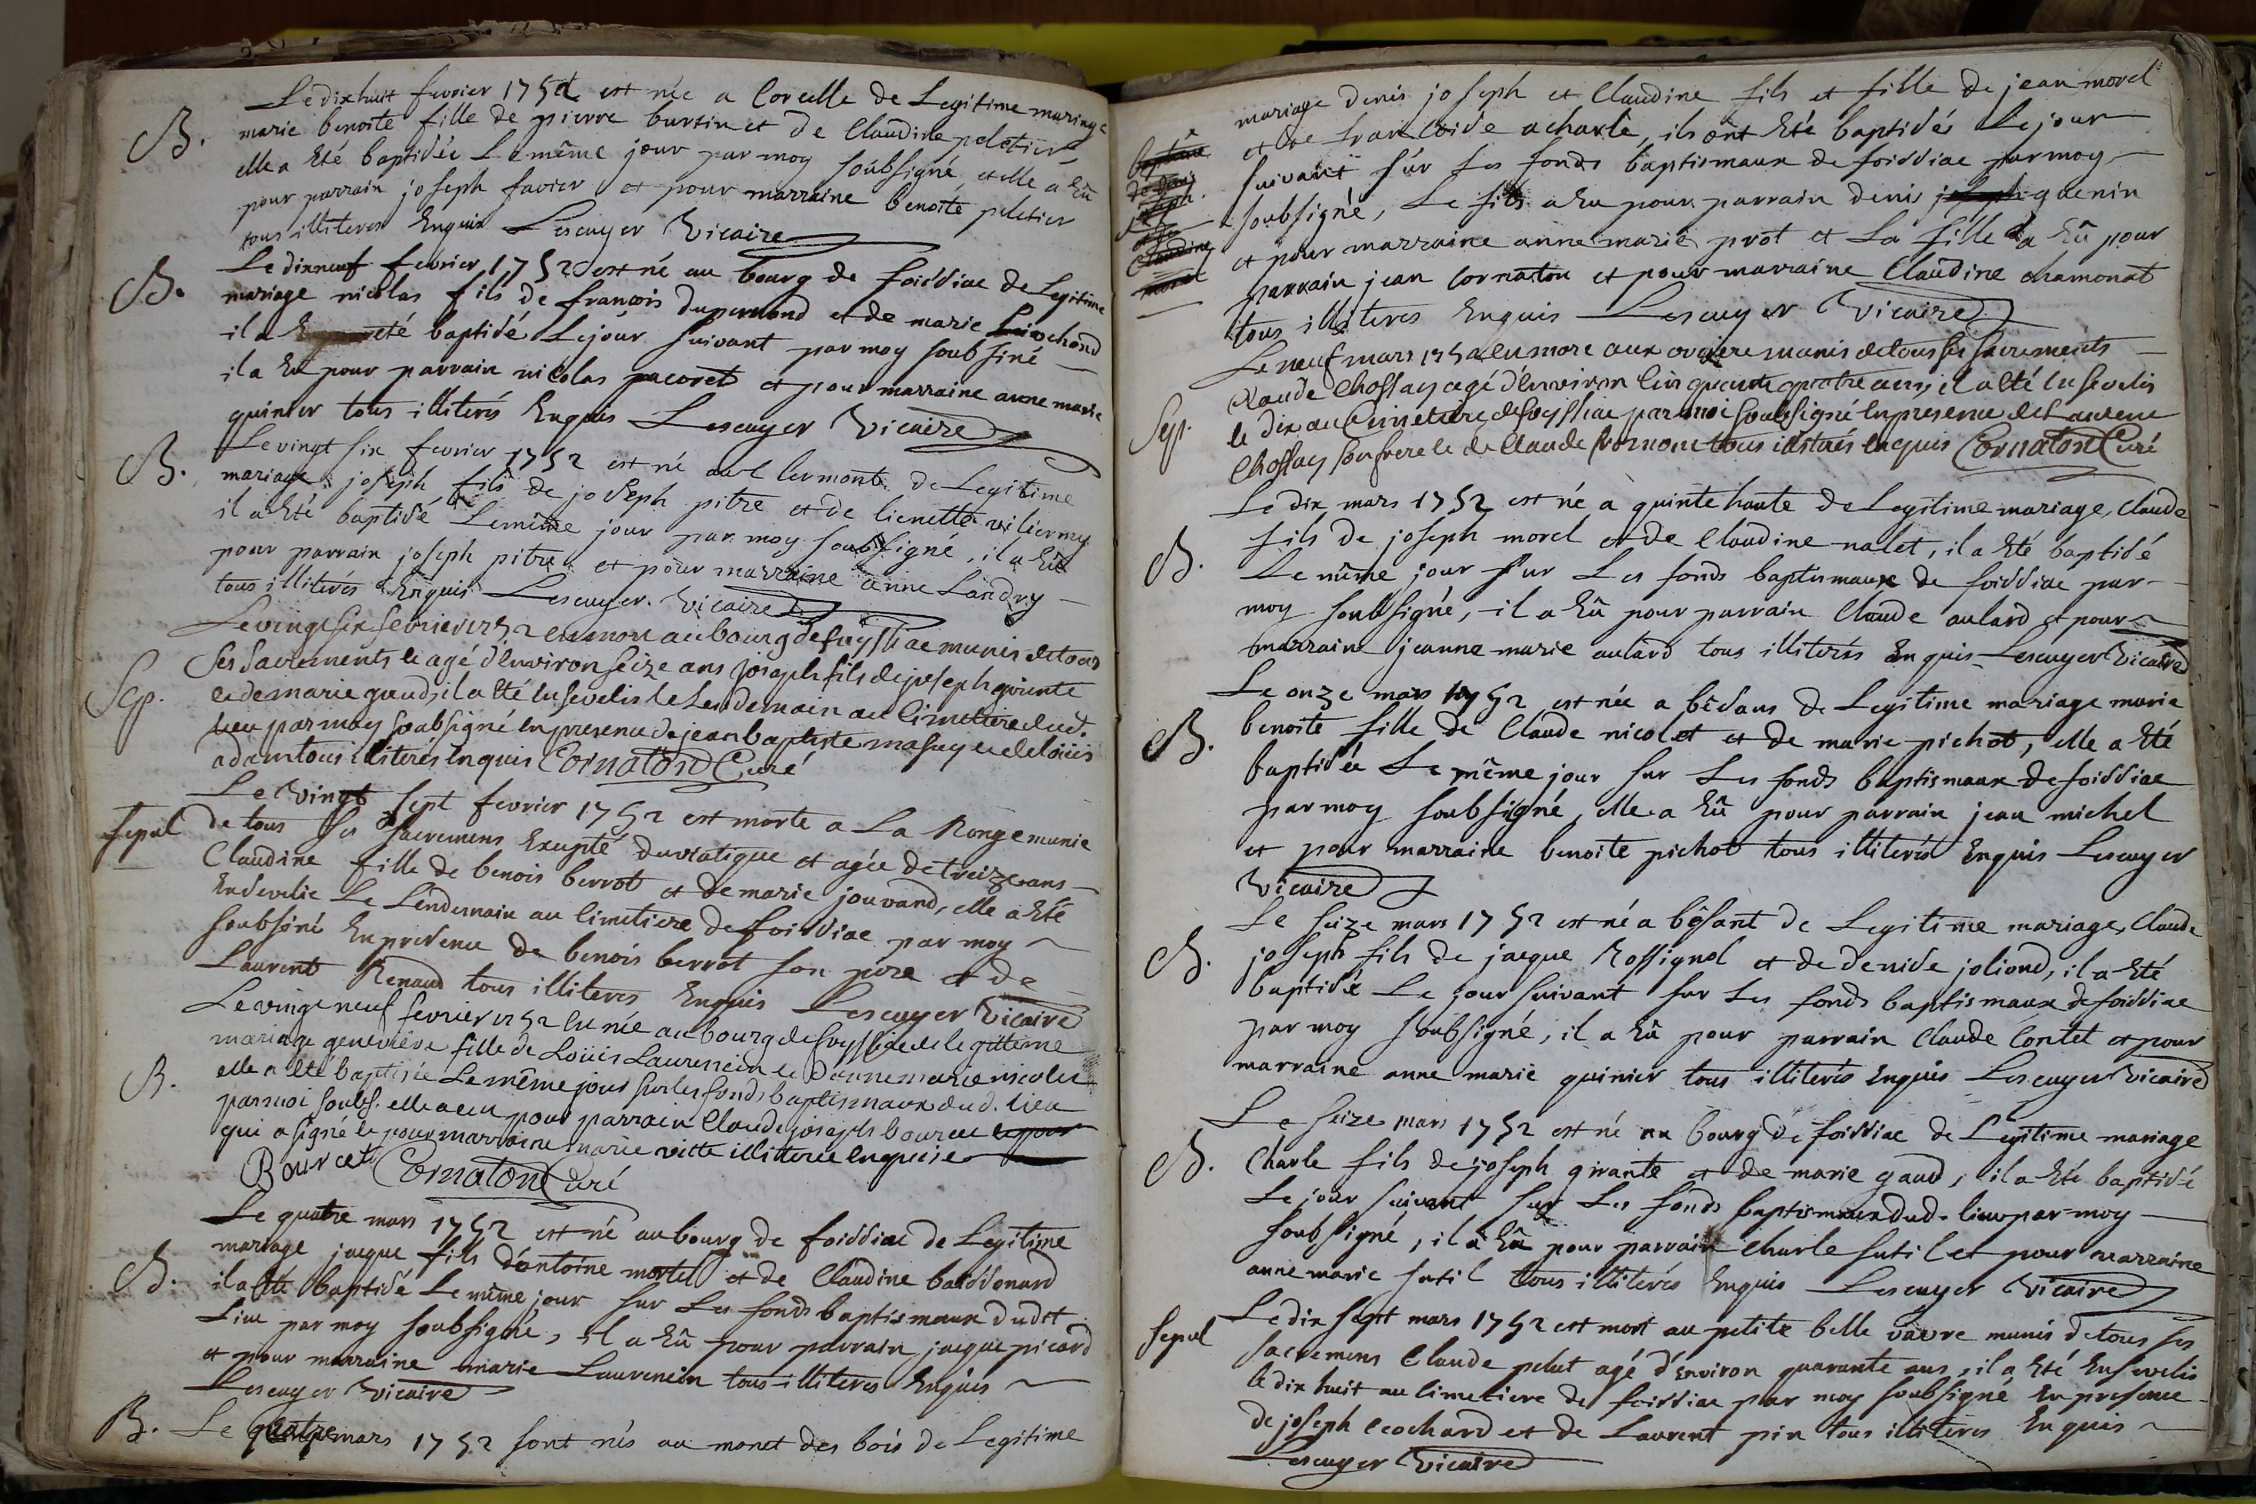 Le dixhuit fevrier 1752 est née a Corcelle de Legitime mariage
B. marie benoite fille de pierre burtin et de Claudine peletier
elle a Eté baptisée Le même jour par moy soubsigné et elle a Eû
pour parrain joseph favier et pour marraine benoite peletier
tous illiteres Enquis Lescuyer Vicaire
Le dixneuf fevrier 1752 est né au bourg de foissiac de Legitime
B. mariage nicolas fils de françois dupermond et de marie
il a Eté baptisé Le jour suivant par moy soubsiné
il a Eu pour parrain nicolas pacoret et pour marraine anne marie
quinier tous illiterés Enquis Lescuyer Vicaire
Le vingt six fevrier 1752 est né au Clermont de Legitime
B. mariage joseph fils de joseph pitre et de lienette
il a Eté baptisé Le même jour par moy soubsigné, il a Eû
pour parrain joseph pitre et pour marraine anne Landry
tous illiterés Enquis Lescuyer Vicaire
Le vingt six fevrier 1752 est mort au bourg de foyssiac munis de tous
Sep. ses sacrements et agé d'environ seize ans joseph fils de joseph girante
et de marie gaud, il a eté Ensevelis le Lendemain au Cimetiere dud.
lieu par moy soubsigné En presence de jean baptiste masuy et de loüis
adam tous illiterés Enquis Cornaton Curé
Le vingt sept fevrier 1752 est morte a La Ronge munie
sepul de tous ses sacremens Exepté du viatique et agée de treize ans
Claudine fille de benois berrot et de marie jouvand, elle a Eté
Ensevelie Le Lendemain au Cimetiere de foissiac par moy
soubsiné En presence de benois berrot son pere et de
Laurent Renaud tous illiteres Enquis Lescuyer Vicaire
Le vingt neuf fevrier 1752 est née au bourg de foyssiac de legitime
mariage geneviève fille de Loüis Laurencin et d'anne marie nicolet
B. elle a été baptisée Le même jour sur les fonds baptismaux dud. lieu
par moi soubs. elle a eu pour parrain Claude joseph bourcet
qui a signé et pour marraine marie vitte illitterée enquise
Bourcet Cornaton Curé
Le quatre mars 1752 est né au bourg de foissiac de Legitime
mariage jacque fils d'antoine mortel et de Claudine
B. il a Eté baptisé Le même jour sur Les fonds baptismaux dudt
Lieu par moy soubsigné, il a Eû pour parrain jacque picard
et pour marraine marie Laurencin tous illiteres Enquis
Lescuyer Vicaire
B. Le quatre mars 1752 sont nés au monet des bois de Legitime
mariage denis joseph et Claudine fils et fille de jean morel
et de françoise acharle, ils ont Eté baptisés Le jour
baptême de denis joseph et de Claudine morel
suivant sur Les fonds baptismaux de foissiac par moy
soubsigné, Le fils a Eu pour parrain denis joseph quenin
et pour marraine anne marie prot et La fille a Eû pour
parrain jean Cornaton et pour marraine Claudine chamonat
tous illiteres Enquis Lescuyer Vicaire
Le neuf mars 1752 est mort aux munis de tous ses sacrements
Claude Chossay agé d'Environ Cinquante quatre ans, il a eté Ensevelis
Sep. le dix au Cimetiere de foyssiac par moi soubsigné En presence de Laurent
Chossay son frere et de Claude tous illiterés Enquis Cornaton Curé
Le dix mars 1752 est né a quinte haute de Legitime mariage, Claude
B. fils de joseph morel et de Claudine nalet, il a Eté baptisé
Le même jour sur Les fonds baptismaux de foissiac par
moy soubsigné, il a Eû pour parrain Claude aulard et pour
marraine jeanne marie aulard tous illiterés Enquis Lescuyer Vicaire
Le onze mars 1752 est née a bésans de Legitime mariage marie
B. benoite fille de Claude nicolet et de marie pichot, elle a Eté
baptisée Le même jour sur Les fonds baptismaux de foissiac
par moy soubsigné, elle a Eû pour parrain jean michel
et pour marraine benoite pichot tous illiterés Enquis Lescuyer
Vicaire
Le seize mars 1752 est né a bésant de Legitime mariage, Claude
B. joseph fils de jacque Rossignol et de denise joliond, il a Eté
baptisé Le jour suivant sur Les fonds baptismaux de foissiac
par moy soubsigné, il a Eû pour parrain Claude Contet et pour
marraine anne marie quinier tous illiterés Enquis Lescuyer Vicaire
Le seize mars 1752 est né au bourg de foissiac de Legitime mariage
B. Charle fils de joseph girante et de marie gaud, il a Eté baptisé
Le jour suivant sur Les fonds baptismaux dud. lieu par moy
soubsigné, il a Eû pour parrain Charle sutil et pour marraine
anne marie sutil tous illiterés Enquis Lescuyer Vicaire
Le dix sept mars 1752 est mort au petite belle vavre munis de tous ses
Sepul sacremens Claude pelut agé d'Environ quarante ans, il a Eté Ensevelis
le dix huit au Cimetiere de foissiac par moy soubsigné En presence
de joseph cochard et de Laurent pin tous illiteres Enquis
Lescuyer Vicaire